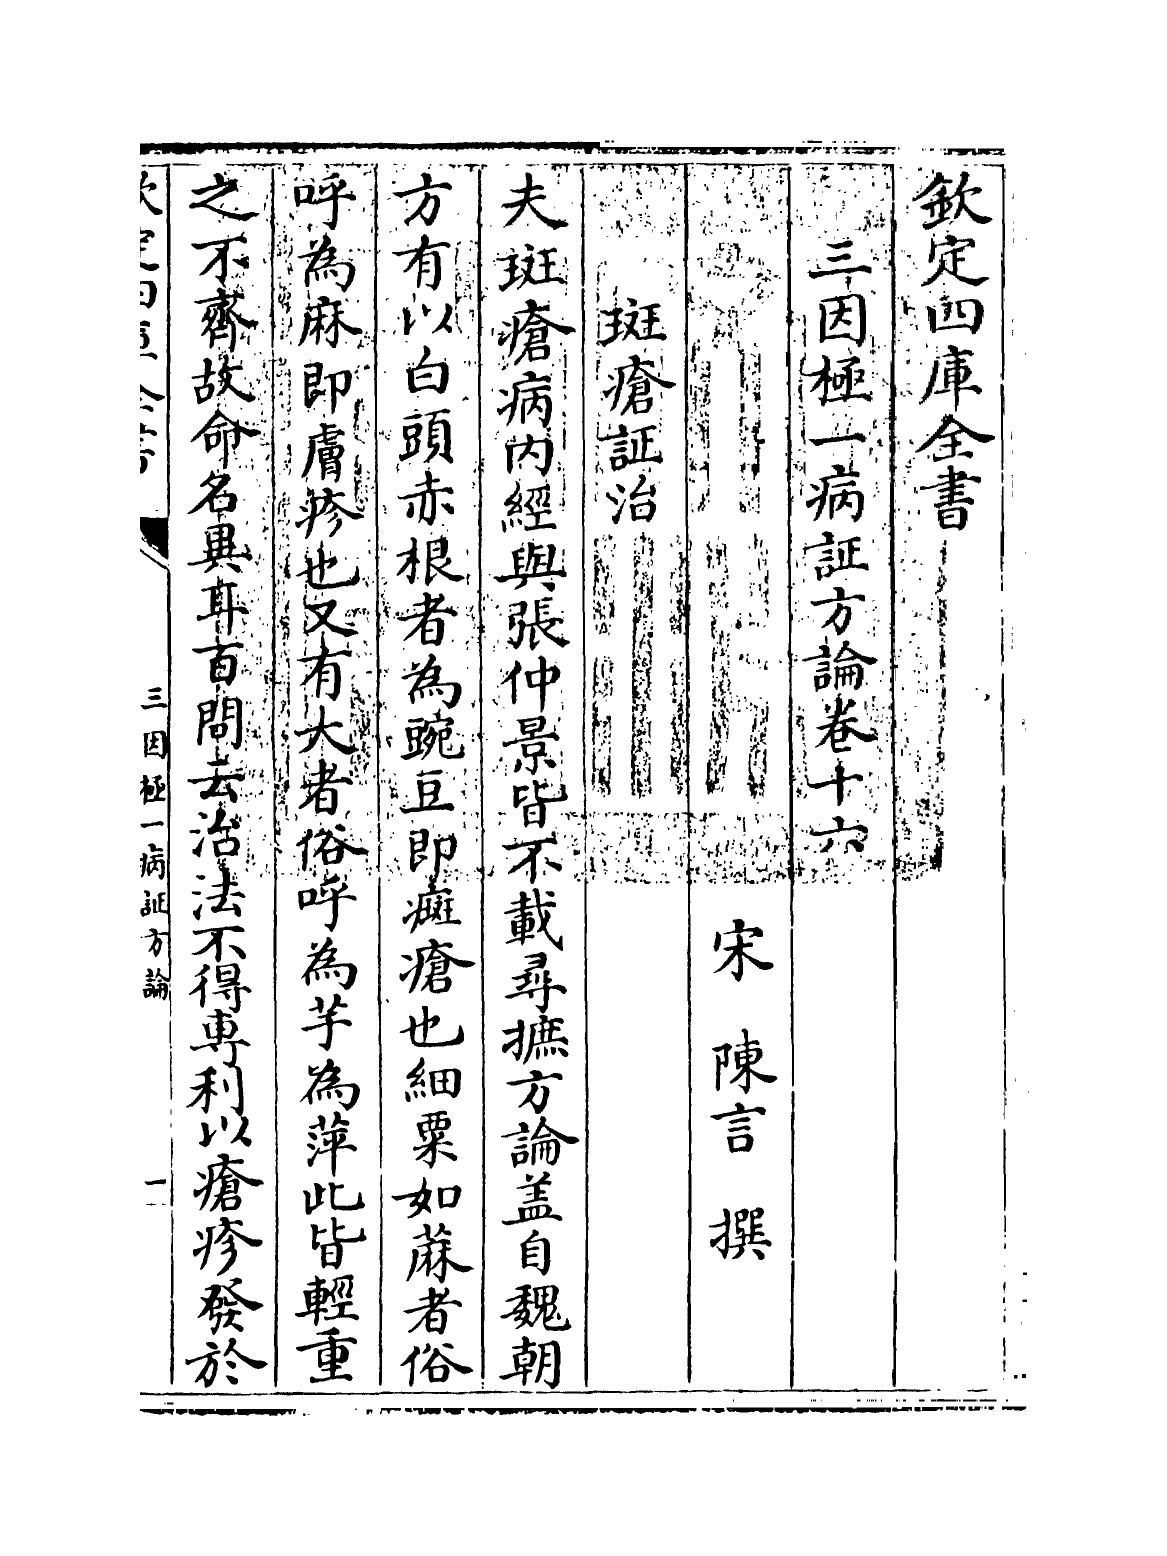 欽定四庫全書
三因極一病証方論卷十六
宋 陳言 撰
斑瘡証治
夫斑瘡病内經與張仲景皆不載尋摭方論盖自魏朝
方有以白頭赤根者為豌豆即癍瘡也細粟如蔴者俗
呼為麻即膚疹也又有大者俗呼為芋為萍此皆輕重
之不齊故命名異耳百問云治法不得専利以瘡疹發於
三因極一病証方論
一